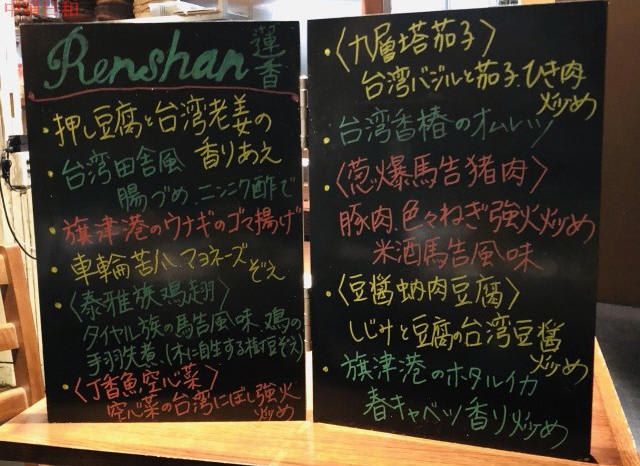 Renshan 蓮香
・押し豆腐と台湾老姜の
香りあえ
・台湾田舎風
腸づめ、ニンニク酢で
・旗津港のウナギのゴマ揚げ
・車輪苦瓜、マヨネーズ
ぞえ
・〈泰雅族鶏翅〉
タイヤル族の馬告風味、鶏の
手羽佚煮、(木に自生する樹豆ぞえ)
・〈丁香魚空心菜〉
空心菜の台湾にぼし強火
炒め
・〈九層塔茄子〉
台湾バジルと茄子、ひき肉
炒め
・台湾香椿のオムレツ
・〈葱爆馬告猪肉〉
豚肉、色々ねぎ強火炒め
米酒馬告風味
・〈豆醤蚋肉豆腐〉
しじみと豆腐の台湾豆醤
炒め
・旗津港のホタルイカ
春キャベツ香り炒め